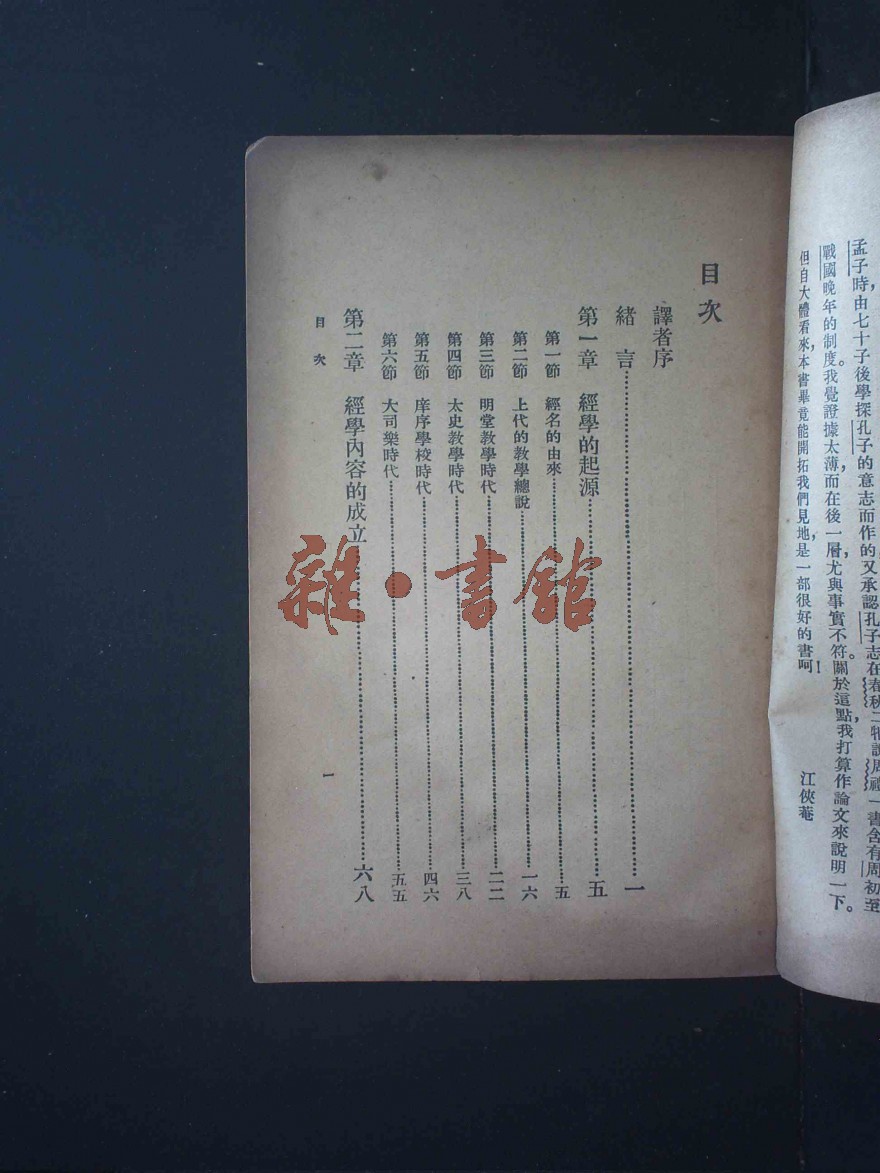 孟子時由七十子後學探孔子的意志而作的，又承認孔子志在春秋二
周禮一書含有周初至
戰國晚年的制度。我覺證據太薄，而在後一層，尤與事實不符。關於這點，我打算作論文來說明一下。
但自大體看來，本書畢竟能開拓我們見地，是一部很好的書呵！
江俠菴
目次
譯者序
緒言…一
第一章 經學的起源…五
第一節 經名的由來…五
第二節 上代的教學總說…一六
第三節 明堂教學時代…二二
第四節 太史教學時代…三八
第五節 庠序學校時代…四六
第六節 大司樂時代…五五
第二章 經學內容的成立…六八
目次
一
雜·書館